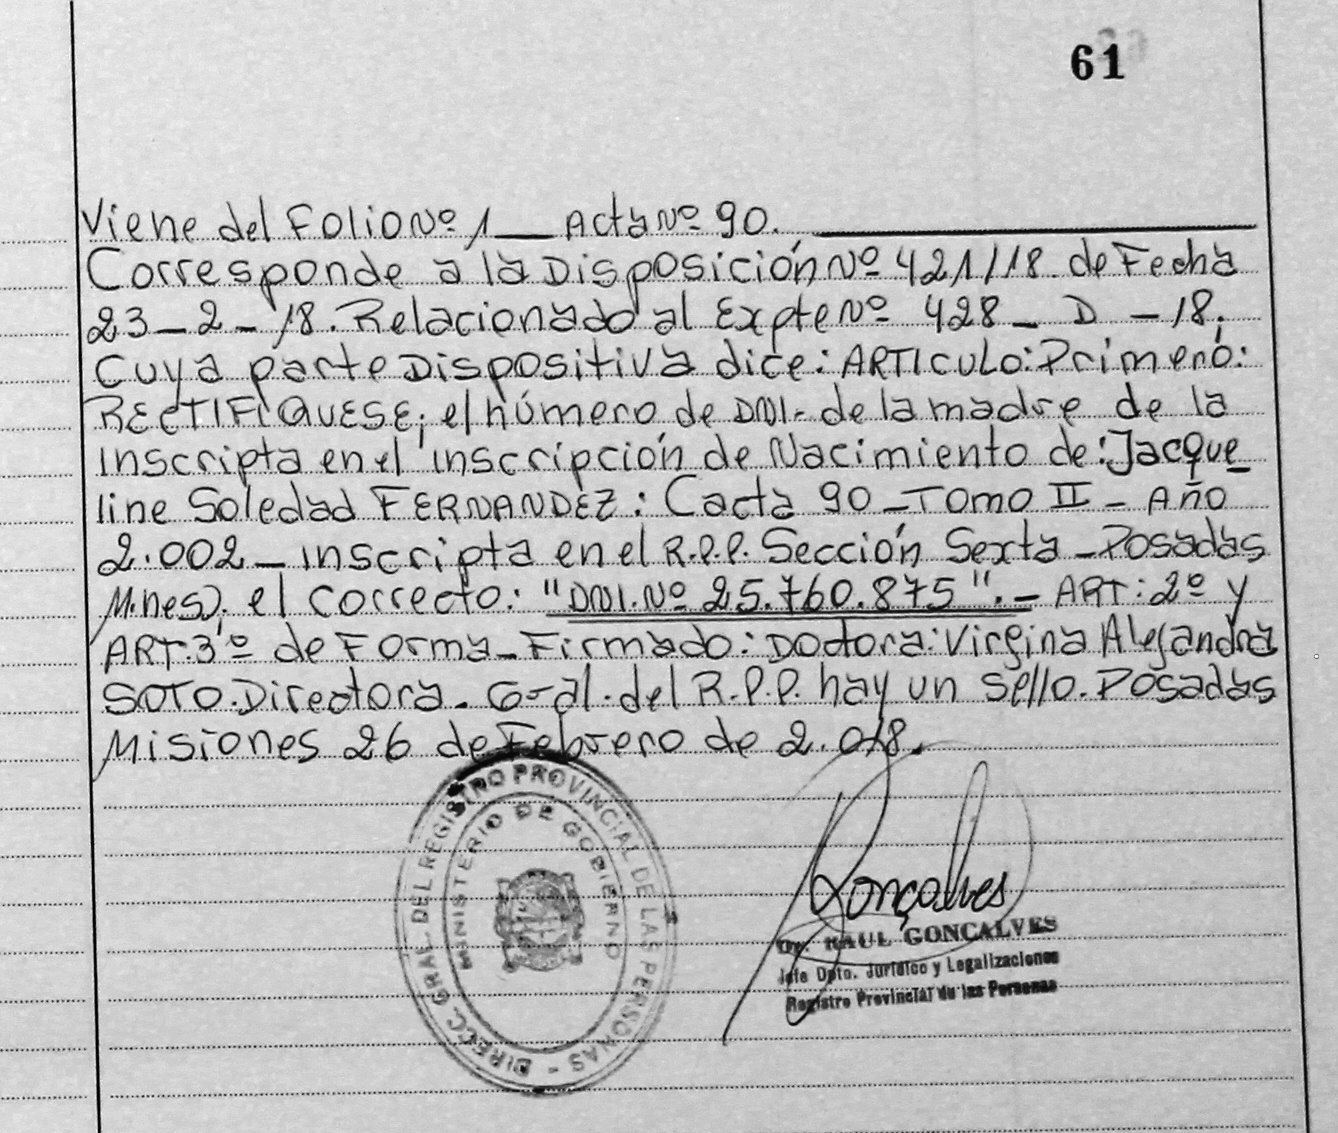 61
Viene del Folio Nº 1 — Acta Nº 90.
Corresponde a la Disposición Nº 421/18. de Fecha
23-2-18. Relacionado al Expte Nº 428 - D - 18.
Cuya parte Dispositiva dice: ARTICULO: Primero:
RECTIFIQUESE; el número de DNI- de la madre de la
Inscripta en el inscripción de Nacimiento de: Jacque
line Soledad FERNANDEZ: Cacta 90 - Tomo II - Año
2.002 - Inscripta en el R.P.P. Sección Sexta - Posadas
Mnes). el Correcto: "DNI. Nº 25.760.875". - ART: 2º y
ART: 3º de Forma - Firmado: Doctora: Virgina Alejandra
SOTO. Directora. G-al. del R.P.P. hay un sello. Posadas
Misiones 26 de Febrero de 2.018.
DIRECC. GRAL. DEL REGISTRO PROVINCIAL DE LAS PERSONAS -
MINISTERIO DE GOBIERNO
Gonçalves
Dr. RAUL GONCALVES
Jefe Dpto. Jurídico y Legalizaciones
Registro Provincial de las Personas